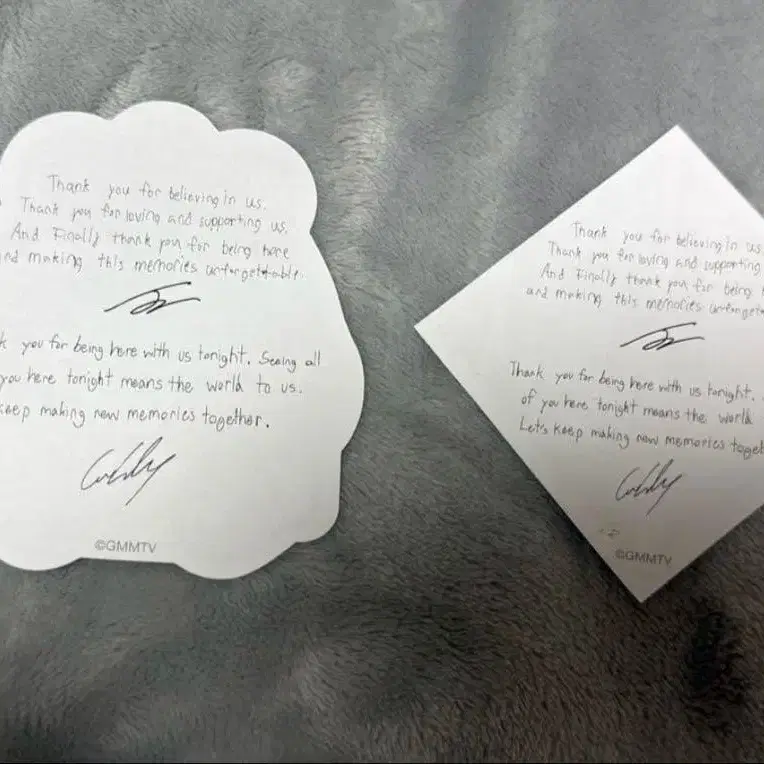 Thank you for believing in us.
Thank you for loving and supporting us.
And Finally thank you for being here
nd making this memories unforgettable.
k you for being here with us tonight. Seeing all
you here tonight means the world to us.
keep making new memories together.
©GMMTV
Thank you for believing in us
Thank you for loving and supporting
And Finally thank you for being h
and making this memories unforget
Thank you for being here with us tonight.
of you here tonight means the world
Let's keep making new memories toget
©GMMTV